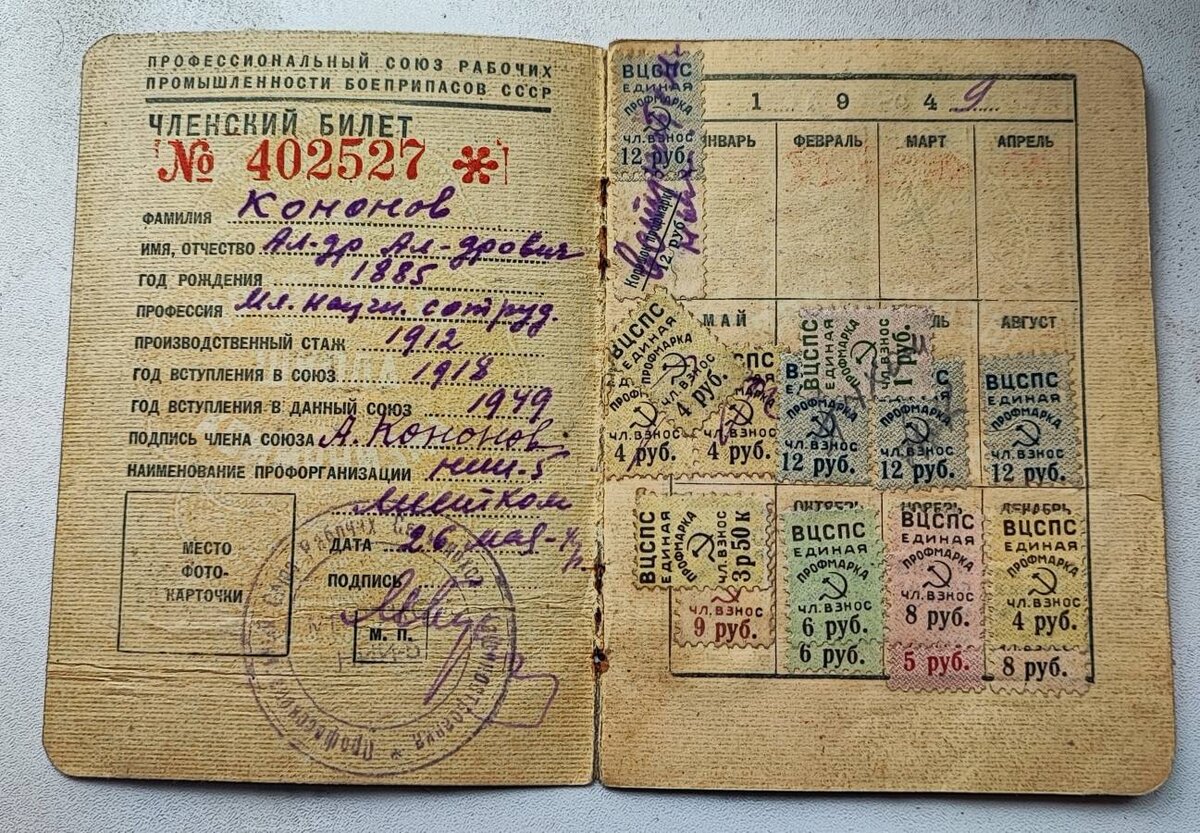 ПРОФЕССИОНАЛЬНЫЙ СОЮЗ РАБОЧИХ
ПРОМЫШЛЕННОСТИ БОЕПРИПАСОВ СССР
ЧЛЕНСКИЙ БИЛЕТ
№ 402527
ФАМИЛИЯ Кононов
ИМЯ, ОТЧЕСТВО Ал-др Ал-дрович
ГОД РОЖДЕНИЯ 1885
ПРОФЕССИЯ Мл. научн. сотруд.
ПРОИЗВОДСТВЕННЫЙ СТАЖ 1912
ГОД ВСТУПЛЕНИЯ В СОЮЗ 1918
ГОД ВСТУПЛЕНИЯ В ДАННЫЙ СОЮЗ 1949
ПОДПИСЬ ЧЛЕНА СОЮЗА А. Кононов
НАИМЕНОВАНИЕ ПРОФОРГАНИЗАЦИИ НИИ-5
ДАТА 26 мая
ПОДПИСЬ
МЕСТО
ФОТО-
КАРТОЧКИ
М. П.
1 9 4 9
ВЦСПС
ЕДИНАЯ
ПРОФМАРКА
ЧЛ. ВЗНОС
12 руб.
12 руб.
НВАРЬ ФЕВРАЛЬ МАРТ АПРЕЛЬ
МАЙ ЛЬ АВГУСТ
ВЦСПС
ЕДИНАЯ
ПРОФМАРКА
ЧЛ. ВЗНОС
4 руб.
ЧЛ. ВЗНОС
4 руб.
ЧЛ. ВЗНОС
4 руб.
ВЦСПС
ЕДИНАЯ
ПРОФМАРКА
ЧЛ. ВЗНОС
1 руб.
ПРОФМАРКА
ЧЛ. ВЗНОС
12 руб.
ПРОФМАРКА
ЧЛ. ВЗНОС
12 руб.
ВЦСПС
ЕДИНАЯ
ПРОФМАРКА
ЧЛ. ВЗНОС
12 руб.
ВЦСПС
ЕДИНАЯ
ПРОФМАРКА
ЧЛ. ВЗНОС
3 р 50 к
ЧЛ. ВЗНОС
9 руб.
ОКТЯБРЬ
ВЦСПС
ЕДИНАЯ
ПРОФМАРКА
ЧЛ. ВЗНОС
6 руб.
6 руб.
НОЯБРЬ
ВЦСПС
ЕДИНАЯ
ПРОФМАРКА
ЧЛ. ВЗНОС
8 руб.
5 руб.
ДЕКАБРЬ
ВЦСПС
ЕДИНАЯ
ПРОФМАРКА
ЧЛ. ВЗНОС
4 руб.
8 руб.